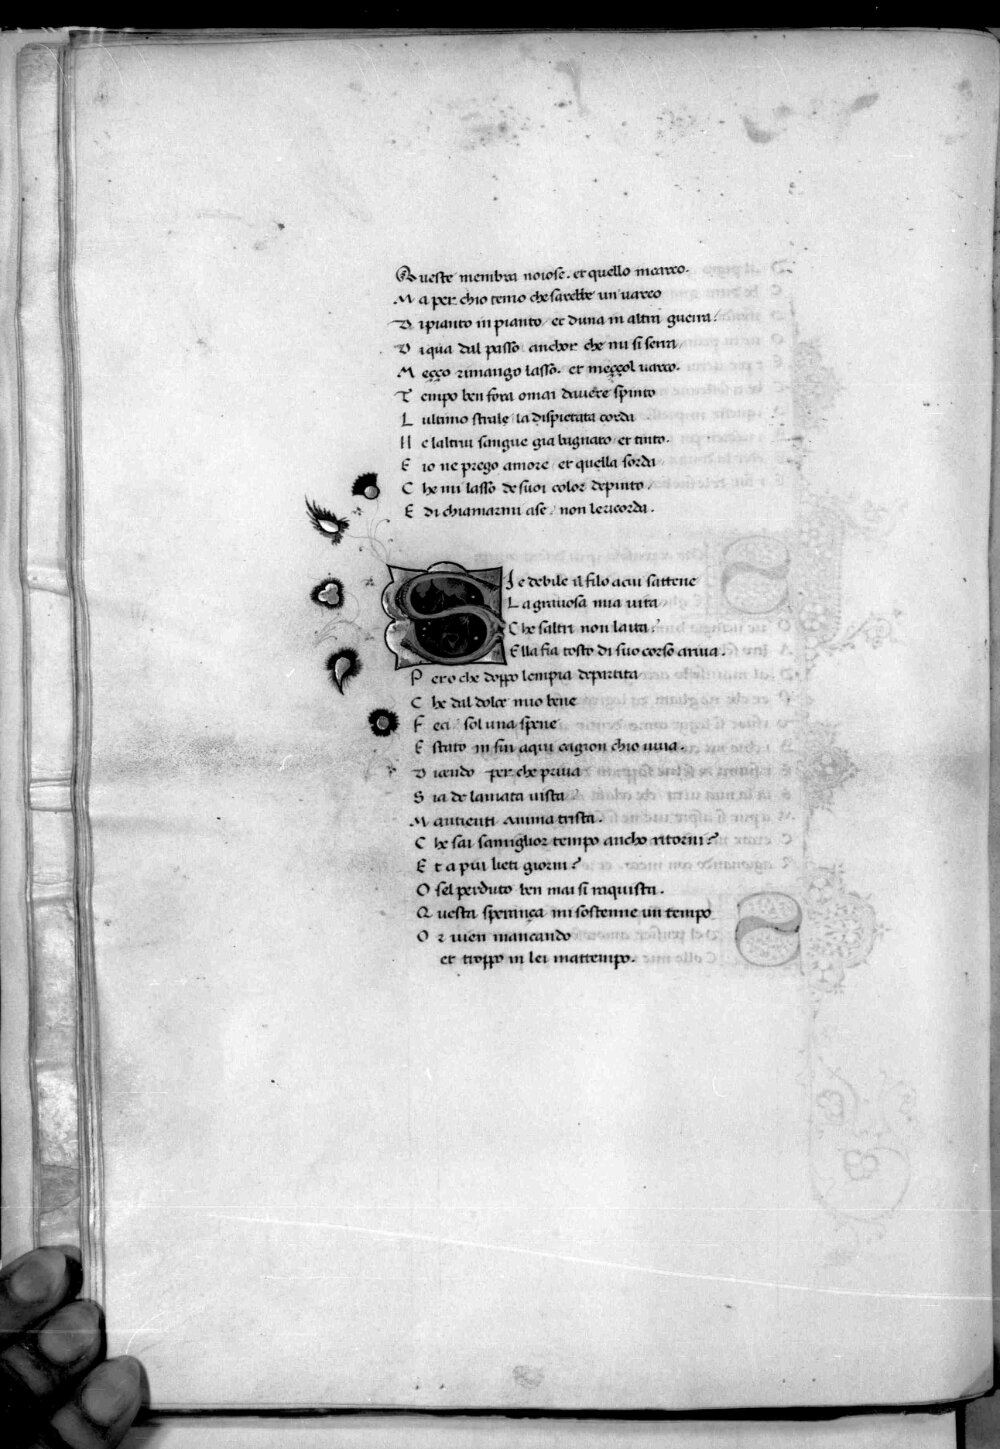 Queste membra noiose. et quello incarco.
Ma per chio temo che sarebbe un varco
Di pianto in pianto et duna in altra guerra.
Di qua dal passo anchor che mi si serra
Meçço rimango lasso. et meççol varco.
Tempo ben fora omai davere spinto
Lultimo strale la dispietata corda
Ne laltrui sangue gia bagnato et tinto.
E io ne prego amore et quella sorda
Che mi lasso de suoi color depinto
E di chiamarmi ase non lericorda.
SI e debile il filo acui sattene
La gravosa mia vita
Che saltri non laita
Ella fia tosto di suo corso ariva.
Pero che doppo lempia departita
Che dal dolce mio bene
Feci sol una spene
E stato in fin aqui cagion chio viva.
Dicendo per che priva
Sia de lamata vista
Mantienti anima trista.
Che sai samiglior tempo ancho ritorni?
Et a piu lieti giorni?
O sel perduto ben mai si raquista.
Questa sperança mi sostenne un tempo
Or vien mancando
et troppo in lei mattempo.